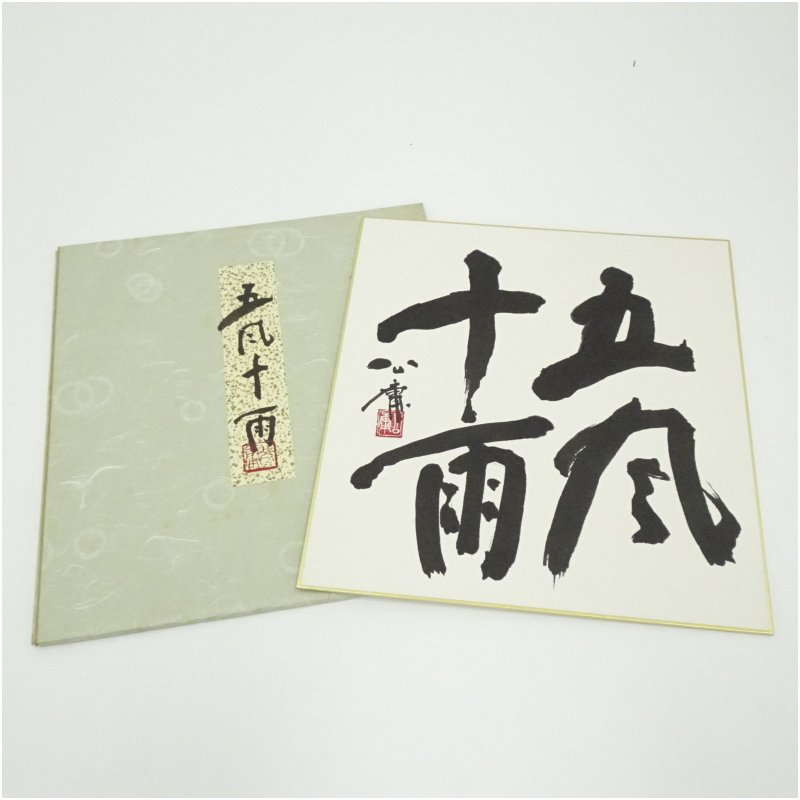 五風十雨
五風
十雨
公庸